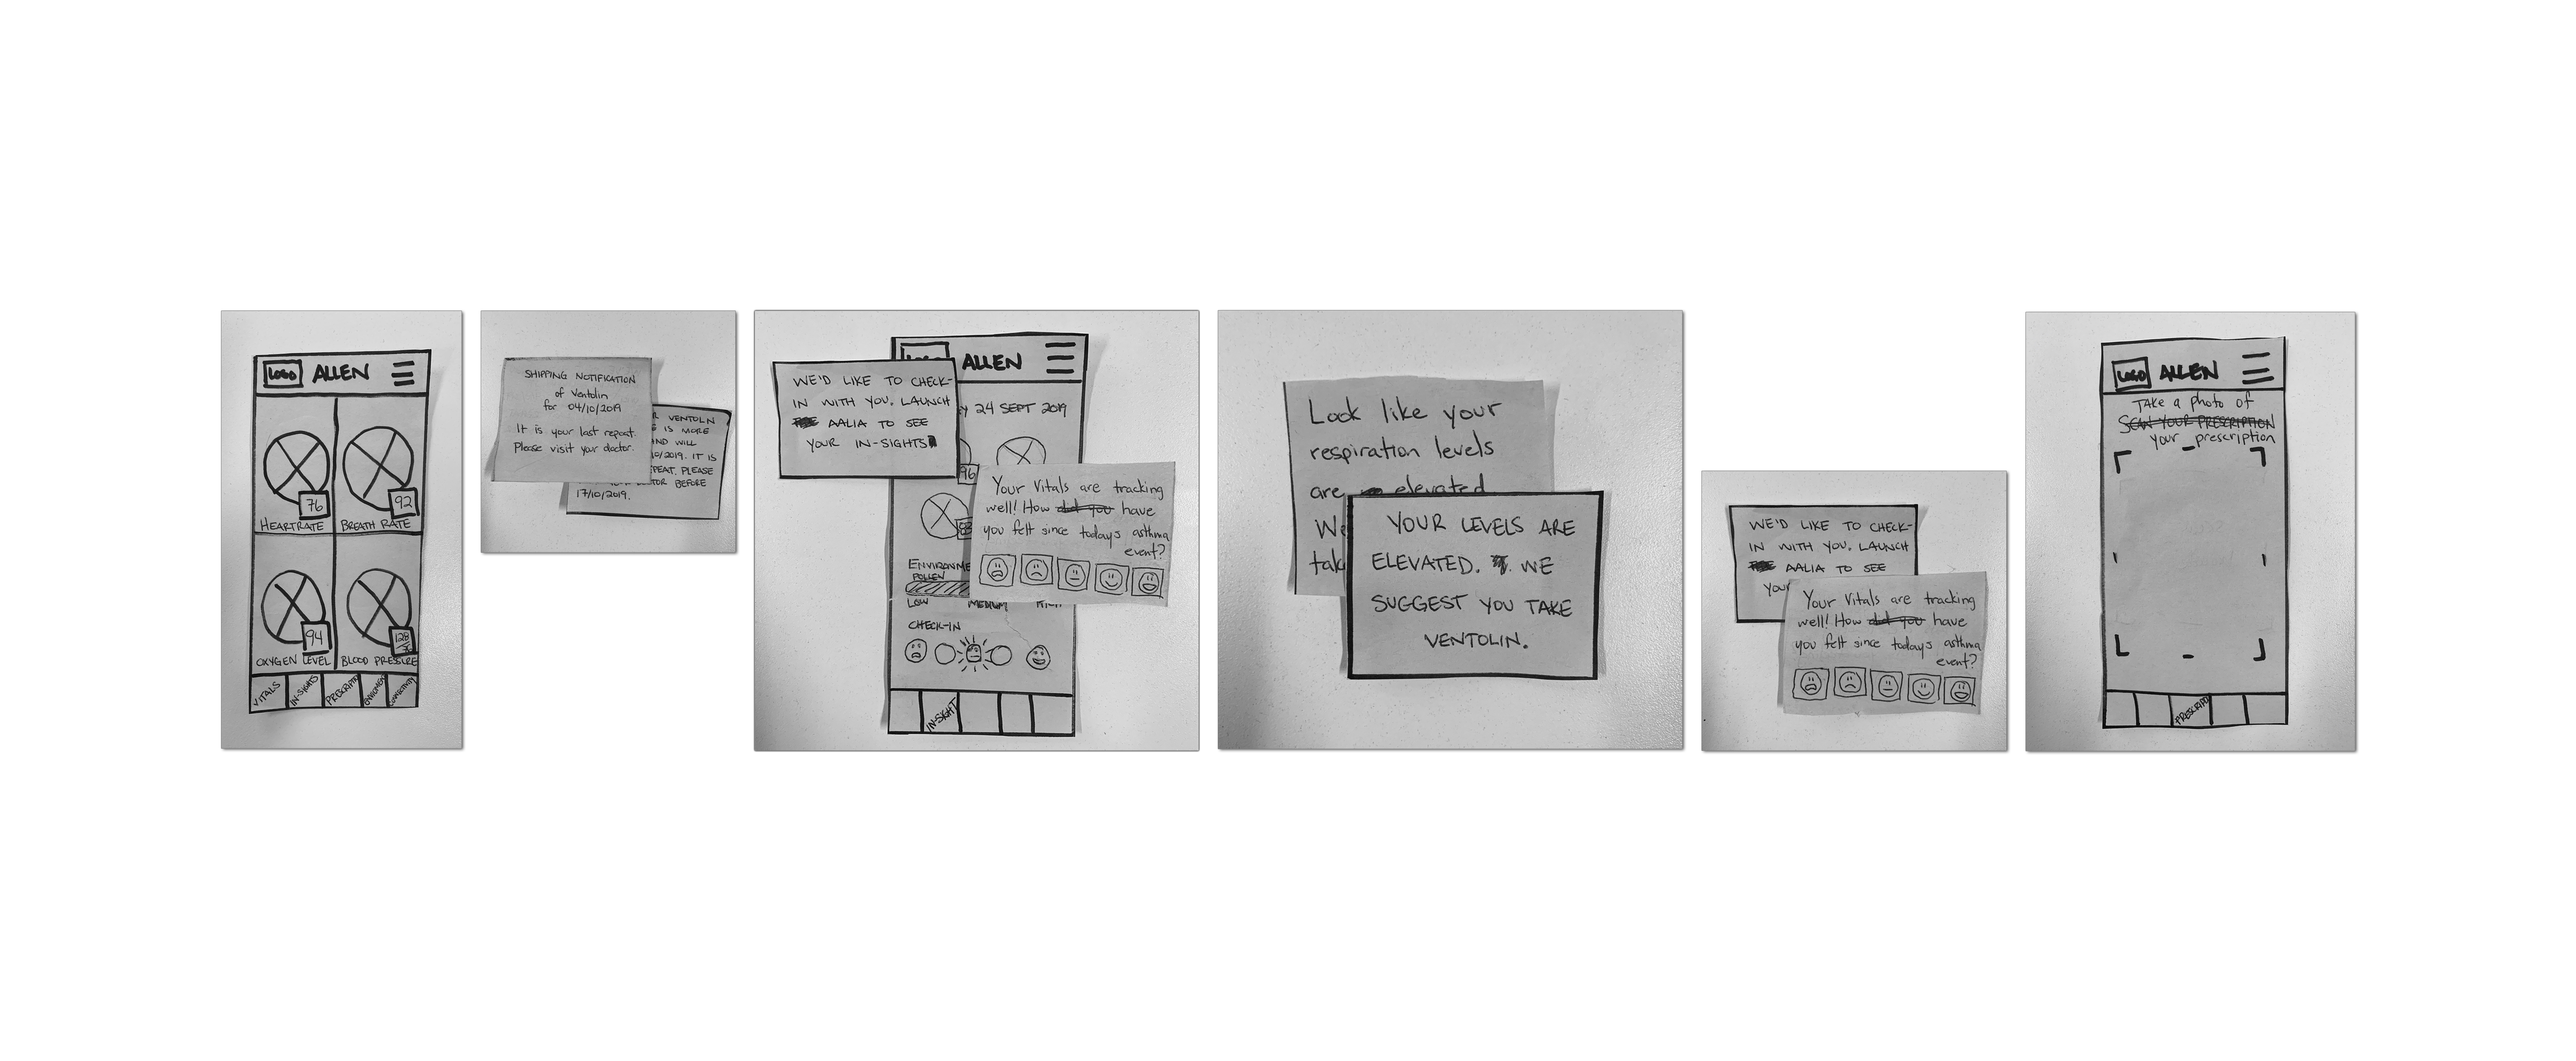 LOGO ALLEN
76
92
HEARTRATE BREATH RATE
94
128
OXYGEN LEVEL BLOOD PRESSURE
VITALS IN-SIGHTS
SHIPPING NOTIFICATION
of Ventolin
for 04/10/2019
It is your last repeat.
Please visit your doctor.
VENTOLIN
IS MORE
WILL
10/2019. IT IS
PLEASE
BEFORE
17/10/2019.
ALLEN
WE'D LIKE TO CHECK-
IN WITH YOU. LAUNCH
AALIA TO SEE
YOUR IN-SIGHTS
24 SEPT 2019
96
Your Vitals are tracking
well! How did you have
you felt since todays asthma
event?
POLLEN
LOW MEDIUM HIGH
CHECK-IN
IN-SIGHT
Look like your
respiration levels
are elevated
We
YOUR LEVELS ARE
ELEVATED. WE
SUGGEST YOU TAKE
VENTOLIN.
WE'D LIKE TO CHECK-
IN WITH YOU. LAUNCH
AALIA TO SEE
YOUR
Your Vitals are tracking
well! How did you have
you felt since todays asthma
event?
LOGO ALLEN
TAKE a photo of
SCAN YOUR PRESCRIPTION
your prescription